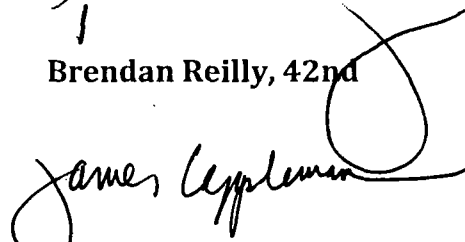 Brendan Reilly, 42nd
James Cappleman